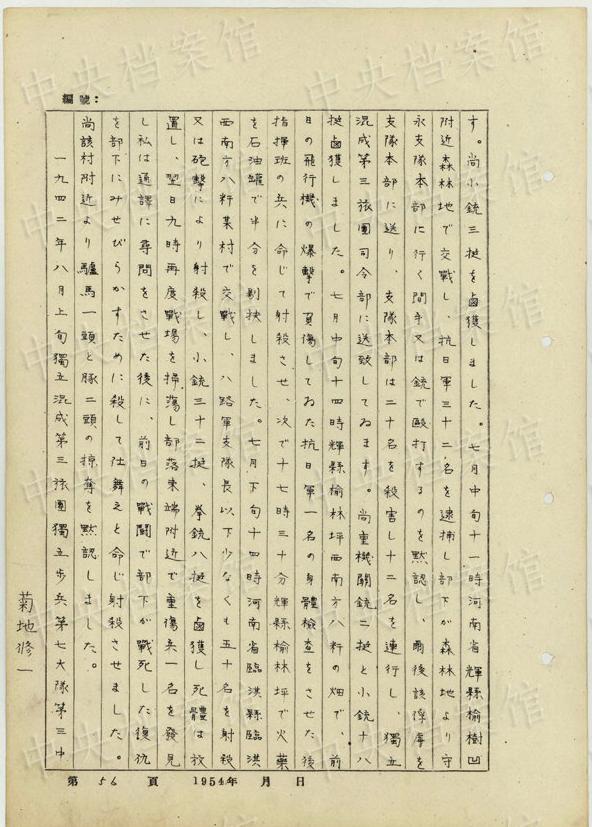 編號：
す。尚小銃三挺を鹵獲しました。七月中旬十一時河南省輝縣榆樹凹
附近森林地で交戰し、抗日軍三十二名を逮捕し部下が森林地より守
永支隊本部に行く間手又は銃で毆打するのを黙認し、爾後該俘虜を
支隊本部に送り、支隊本部は二十名を殺害し十二名を連行し、獨立
混成第三旅團司令部に送致してゐます。尚重機関銃二挺と小銃十八
挺鹵獲しました。七月中旬十四時輝縣榆林坪西南方八粁の畑で、前
日の飛行機の爆擊で負傷してゐた抗日軍一名の身體檢查をさせた後
指揮班の兵に命じて射殺させ、次で十七時三十分輝縣榆林坪で火藥
を石油罐で半分を剔抉しました。七月下旬十四時河南省臨淇縣臨淇
西南方八粁某村で交戰し、八路軍支隊長以下少なくも五十名を射殺
又は砲擊により射殺し、小銃三十二挺、拳銃八挺を鹵獲し死體は放
置し、翌日九時再度戰場を掃蕩し部落東端附近で重傷兵一名を發見
し私は通譯に尋問をさせた後に、前日の戰鬪で部下が戰死した復仇
を部下にみせびらかすために殺して仕舞えと命じ射殺させました。
尚該村附近より驢馬一頭と豚二頭の掠奪を黙認しました。
一九四二年八月上旬獨立混成第三旅團獨立步兵第七大隊第三中
菊地修一
第 56 頁 1954年 月 日
中央档案馆